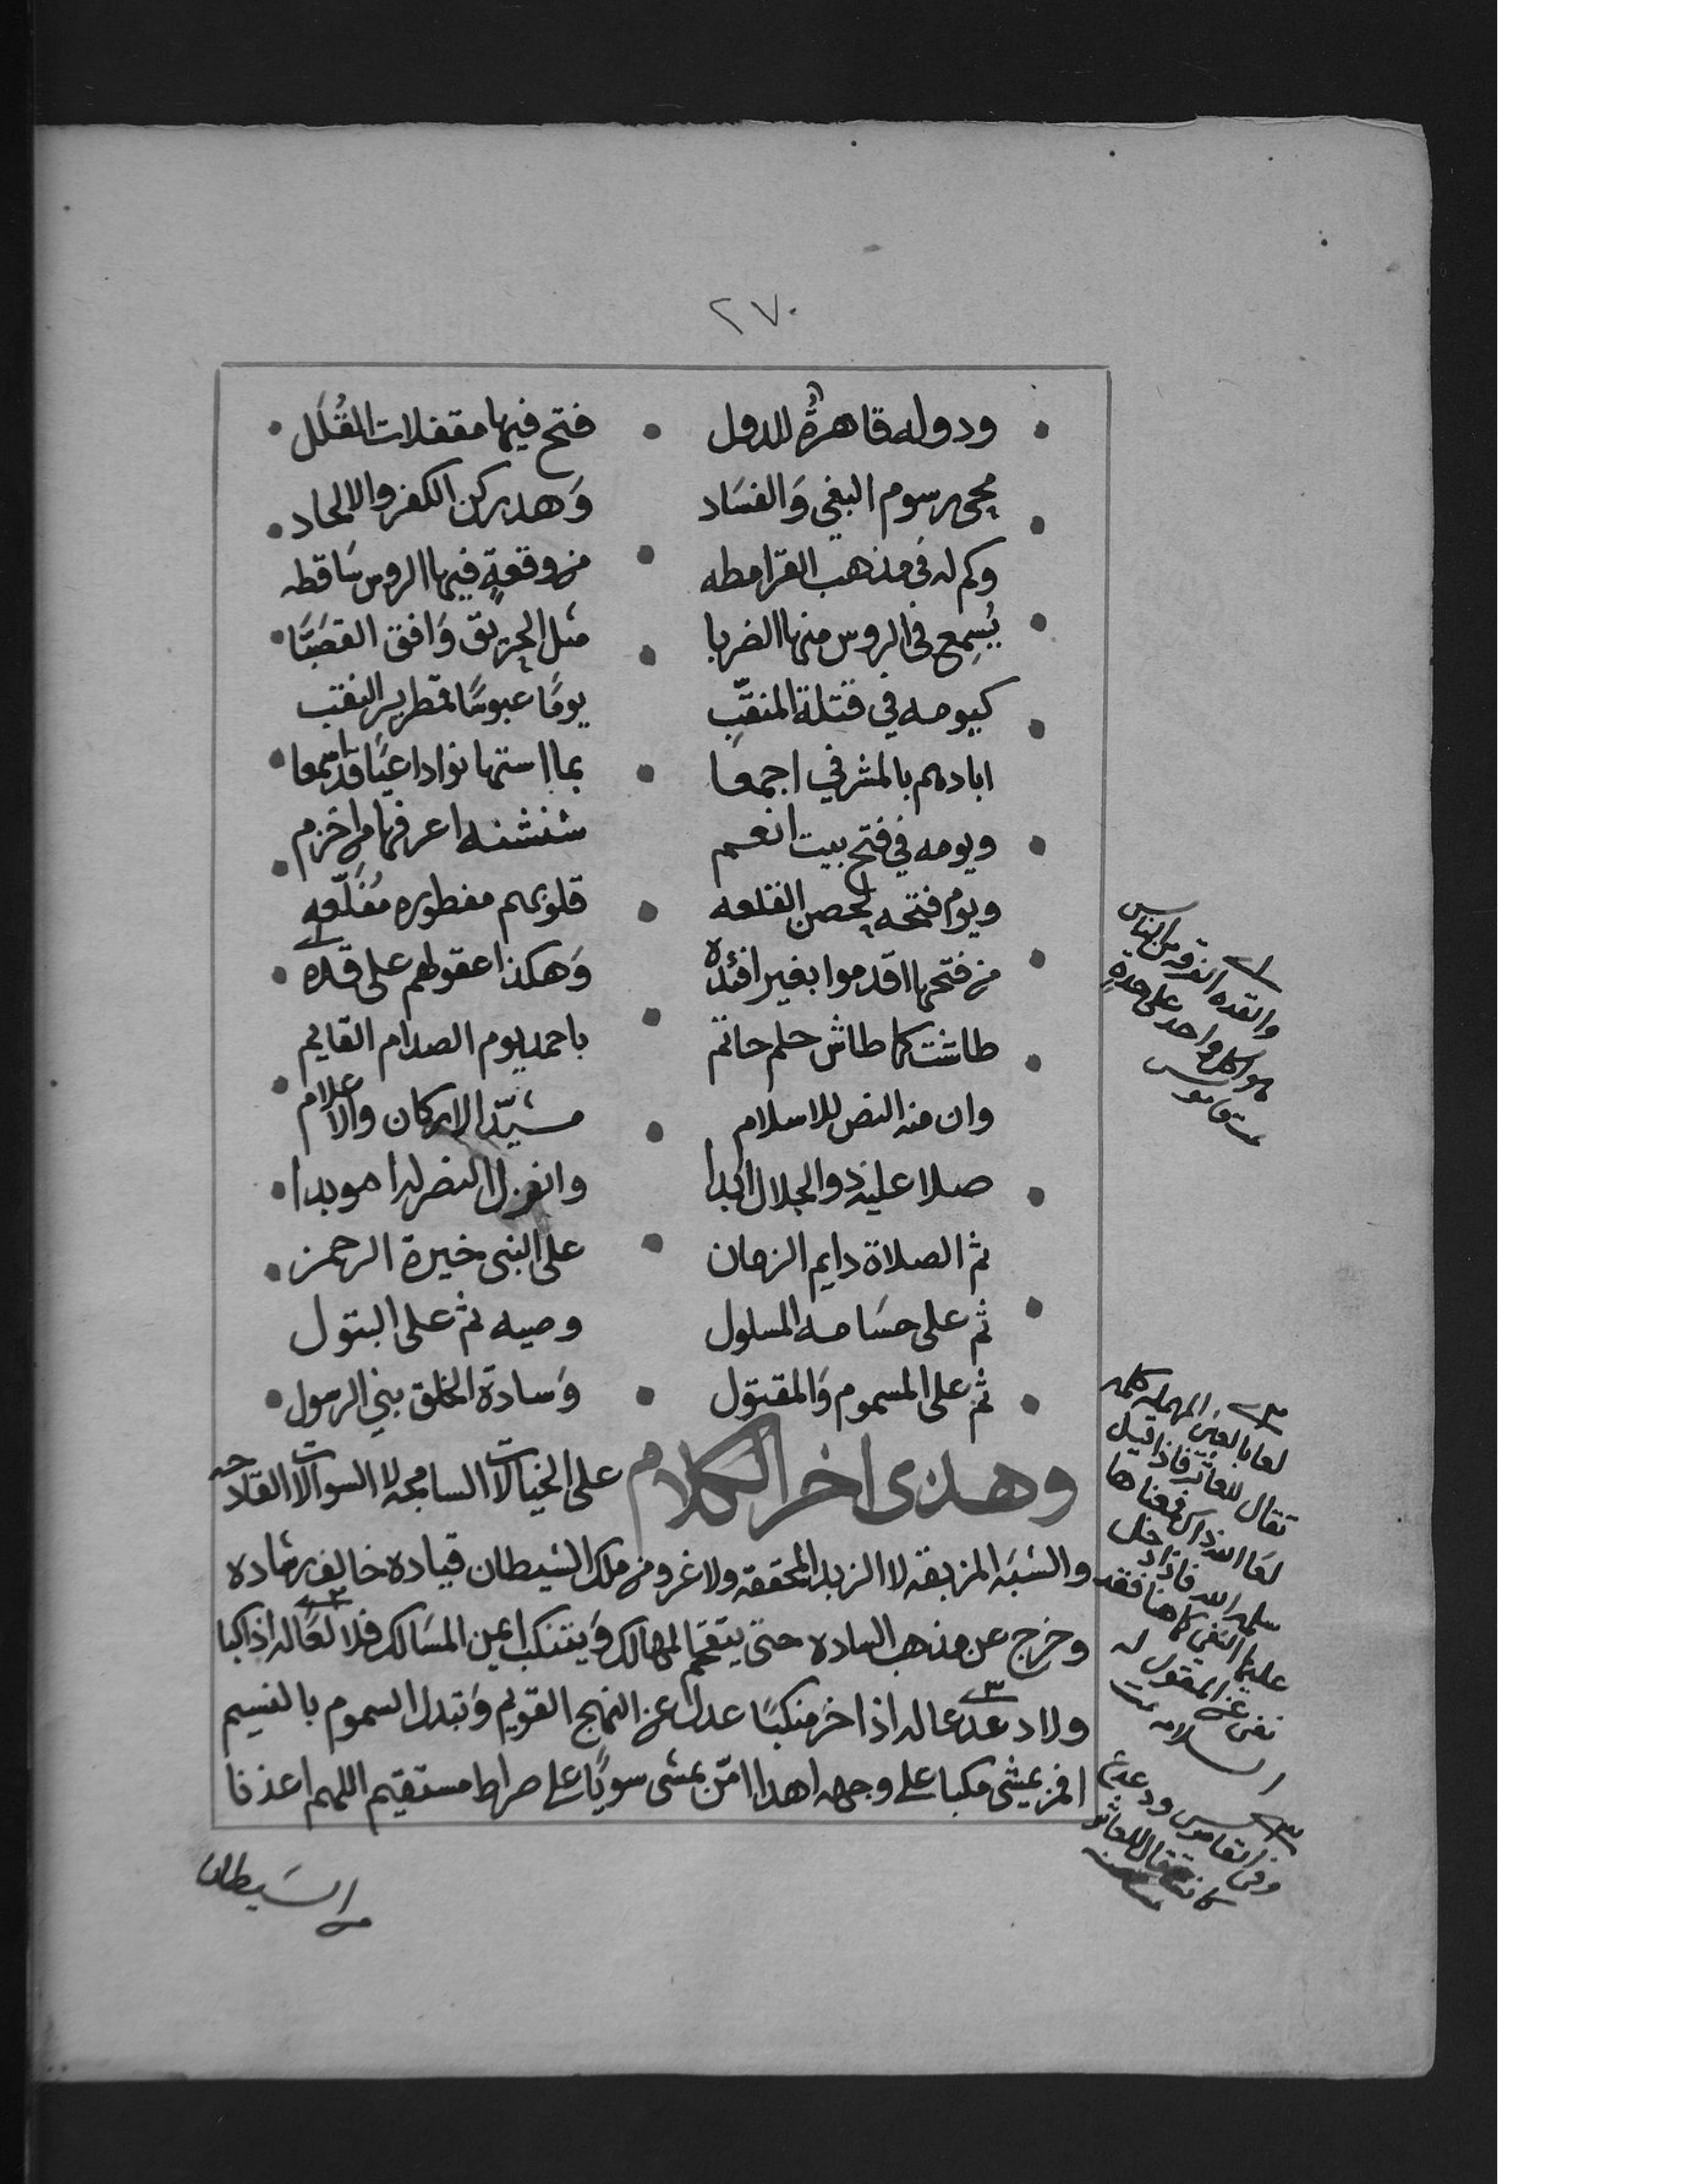 ٢٧٠
ودوله قاهرة للدول • فتح فيها مقفلات القُلَل
محى رسوم البغي وَالفسَاد وَهد ركن الكفر والالحاد
وكم له فى مذهب القرامطه من وقعةٍ فيها الروس سَاقطه
يُسمِع في الروس منها الضربا مثل الحريق وَافق القصَبَا
كيومه في قتلة المنقّبِ يومًا عبوسًا قمطرير النقب
ابادهم بالمشرفي اجمعا بما استهانوا داعيًا قد سمعا
ويومه في فتح بيت انعم شنشنه اعرفها من اخزم
ويوم فتحه لحصن القلعه قلوبهم مفطوره مُقَلّعه
من فتحها اقدموا بغير افئده وَهكذا عقولهم على قده
طاشت كما طاش حلم حاتم باحمد يوم الصدام القايم
وان منه النصر للاسلام مشيّد الاركان والاعلام
صلا عليه ذو الجلال ابدا وانزل النصر له موبدا
ثم الصلاة دايم الزمان على النبى خيرة الرحمن
ثم على حسَامه المسلول وصيه ثم على البتول
ثم على المسموم وَالمقتول وَسادة الخلق بني الرسول
وهذى اخر الكلام على الخيالات السامجه لا السوالات القادحه
والشبَه المزيفه لا الزبد المحققه ولا غرو من ملك الشيطان قياده خالف رشاده
وخرج عن مذهب الساده حتى يتقحم المهالك وَيتنكب ايمن المسَالك فلا لعًا له اذا كبا
ولا دعدعا له اذا خر منكبًا عدل عن النهج القويم وَتبدل السموم بالنسيم
افمن يمشي مكبا على وجهه اهدا امّن يمشى سويًا على صراط مستقيم اللهم اعذنا
من الشيطان
والقده الفرقه من الناس
هوا كل واحد على حدةٍ
قاموس
لعا بالعين المهمله كلمه
تقال للعاثر فاذا قيل
لعَا لله ذلك فمعناها
سلمه الله فاذا دخل
عليها النفي كما هنا فقد
نفى عن المقول له
السلامه
وفى القاموس ودعدع
كانت تقال للعاثر